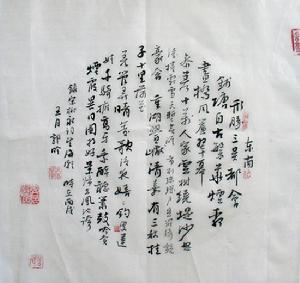 东南
形勝三吴都會
錢塘自古繁華煙柳
畫橋風簾翠幕
参差十萬人家雲樹繞堤沙怒
涛捲霜雪天塹無涯市列珠璣户盈羅綺競
豪奢重湖疊巘清嘉有三秋桂
子十里荷花
羌管弄晴菱歌泛夜嬉嬉釣叟蓮
娃千騎擁高牙乘醉聽簫鼓吟賞
煙霞異日圖將好景歸去鳳池誇
錄宋柳永词望海潮 時在丙戌
五月